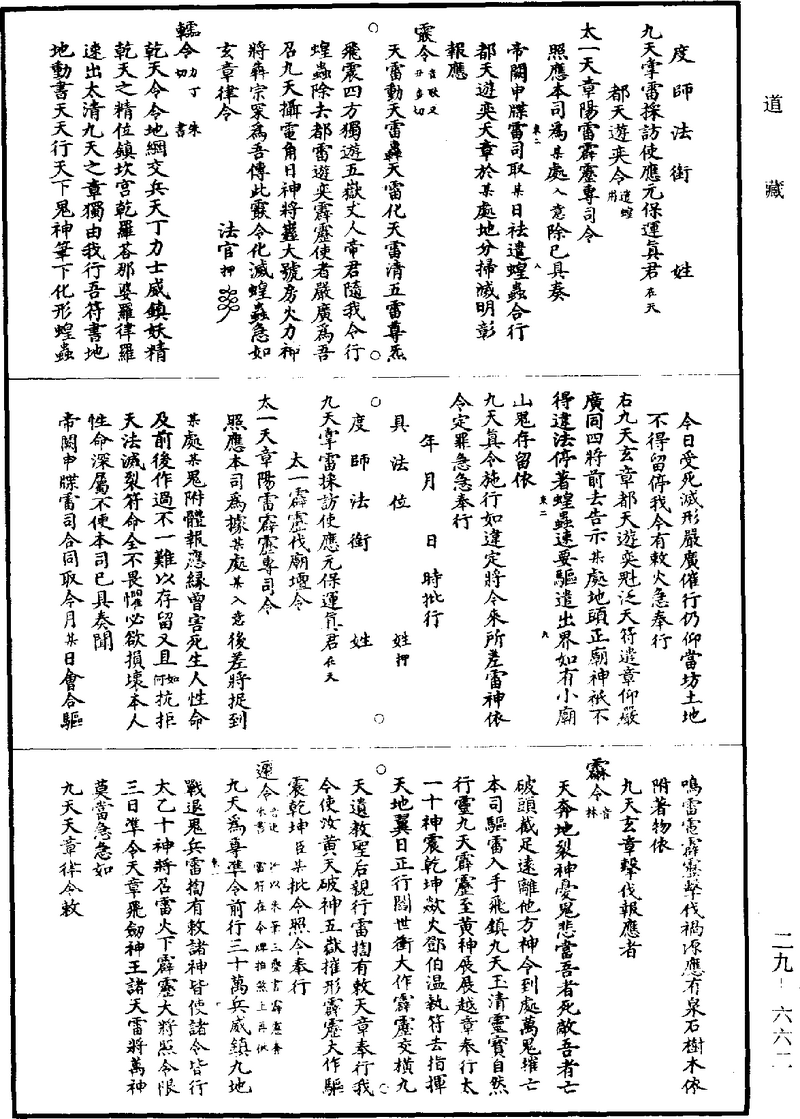 道藏
二九－六六二
度師法銜　姓
九天掌雷採訪使應元保運真君在天
都天遊奕令遣蝗用
太一天章陽雷霹靂專司令
照應本司為某處入意除已具奏
帝闕申牒雷司取某日祛遣蝗蟲合行
都天遊奕天章於某處地分掃滅明彰
報應
天雷動天雷轟天雷化天雷清五雷尊炁
飛震四方獨遊五嶽丈人帝君隨我令行
蝗蟲除去都雷遊奕霹靂使者嚴廣為吾
召九天攝電角日神將蠿大號房火力神
將犇宗罙為吾傳此靈令化滅蝗蟲急如
玄章律令　法官押
乾天令令地綱交兵天丁力士威鎮妖精
乾天之精位鎮坎宮乾羅荅那婆羅律羅
速出太清九天之章獨由我行吾符書地
地動書天天行天下鬼神筆下化形蝗蟲
今日受死滅形嚴廣催行仍仰當坊土地
不得留停我令有敕火急奉行
右九天玄章都天遊奕泛天符遣章仰嚴
廣同四將前去告示某處地頭正廟神祇不
得違法停著蝗蟲速要驅遣出界如有小廟
山鬼存留依
九天真令施行如違定將令來所差雷神依
令定罪急急奉行
年月　日　時批行
具法位　姓押
度師法銜　姓
九天掌雷採訪使應元保運真君在天
太一霹靂伐廟壇令
太一天章陽雷霹靂專司令
照應本司為據某處某入意後差將捉到
某處某鬼附體報應緣曾害死生人性命
及前後作過不一難以存留又且如何抗拒
天法滅裂符命全不畏懼必欲損壞本人
性命深屬不便本司已具奏聞
帝闕申牒雷司合同取今月某日會合驅
鳴雷電霹靂擊伐禍源應有泉石樹木依
附著物依
九天玄章擊伐報應者
天奔地裂神憂鬼悲當吾者死敵吾者亡
破頭截足遠離他方神令到處萬鬼摧亡
本司驅雷入手飛鎮九天玉清靈寶自然
行靈九天霹靂至黃神展展越章奉行太
一十神震乾坤歘火鄧伯溫執符去指揮
天地翼日正行閻世衝大作霹靂交橫九
天遺教聖后親行雷掏有敕天章奉行我
今使汝黃天破神五嶽摧形霹靂大作驅
震乾坤臣某批令照令奉行
九天為尊準令前行三十萬兵威鎮九地
戰退鬼兵雷掏有敕諸神皆使諸令皆行
太乙十神將召雷火下霹靂大將照令限
三日準令天章飛劒神王諸天雷將萬神
莫當急急如
九天天章律令敕